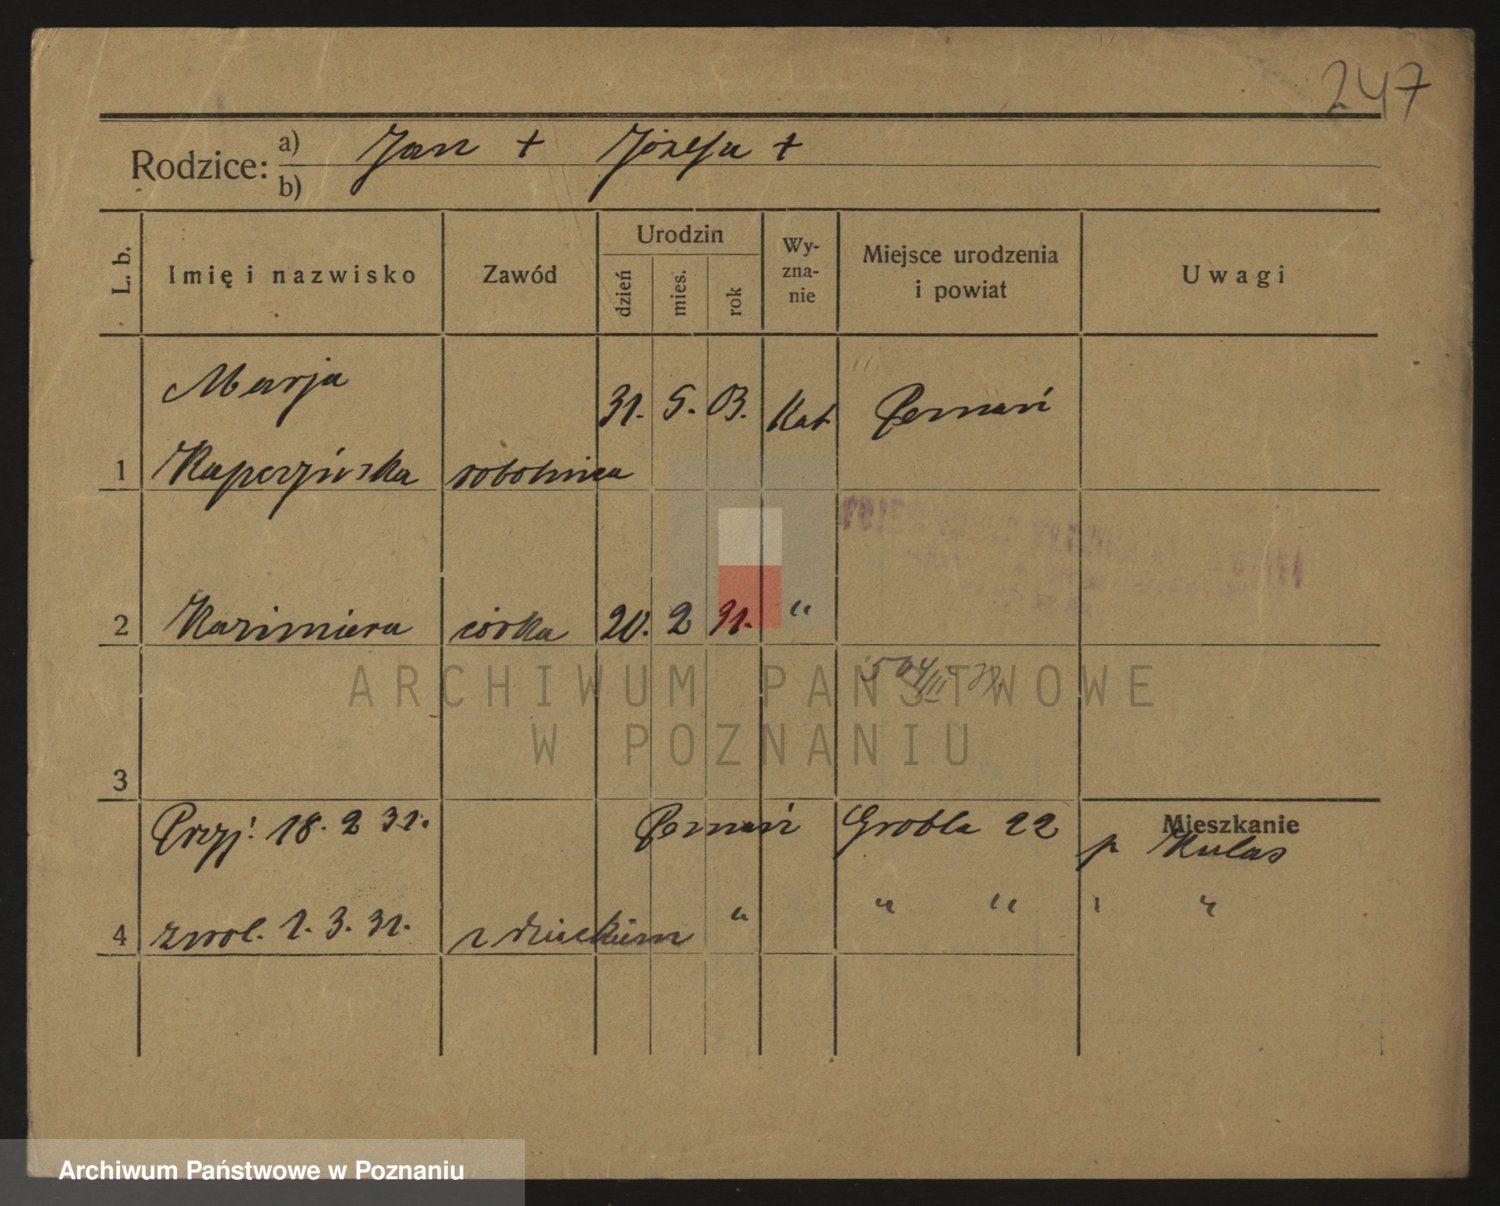 247
Rodzice: a) Jan + Józefa +
b)
L. b.
Imię i nazwisko
Zawód
Urodzin
dzień
mies.
rok
Wy-
zna-
nie
Miejsce urodzenia
i powiat
Uwagi
Marja
31. 5. 03. Kat Poznań
1 Kapczyńska robotnica
2 Kazimiera córka 20. 2 31. "
ARCHIWUM PAŃSTWOWE
W POZNANIU
3
Mieszkanie
Przyj: 18. 2 31. Poznań Grobla 22 p Kulas
4 zwol. 1. 3. 31. z dzieckiem " " " " "
Archiwum Państwowe w Poznaniu